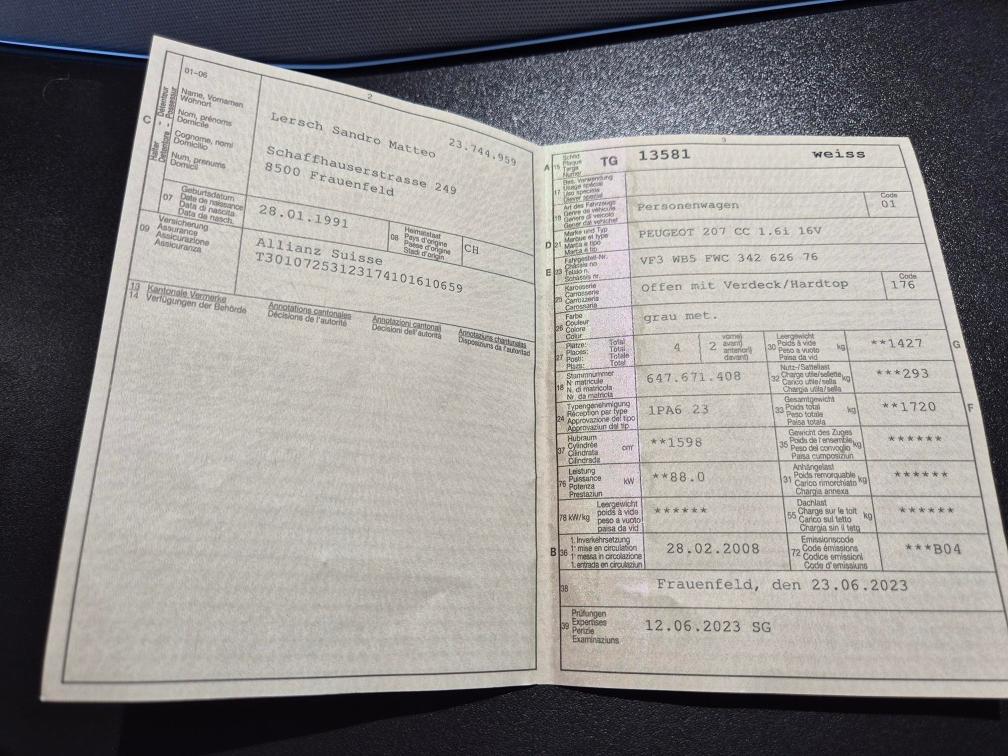 2
01-06
C
Halter
Détenteur
Detentore
Possessur
Name, Vornamen
Wohnort
Nom, prénoms
Domicile
Cognome, nomi
Domicilio
Num, prenums
Domicil
Lersch Sandro Matteo 23.744.959
Schaffhauserstrasse 249
8500 Frauenfeld
07 Geburtsdatum
Date de naissance
Data di nascita
Data da nasch.
28.01.1991
08 Heimatstaat
Pays d'origine
Paese d'origine
Stadi d'origin
CH
09 Versicherung
Assurance
Assicurazione
Assicuranza
Allianz Suisse
T3010725312317410161065​9
13 Kantonale Vermerke
14 Verfügungen der Behörde
Annotations cantonales
Décisions de l'autorité
Annotazioni cantonali
Decisioni dell'autorità
Annotaziuns chantunalas
Disposiziuns da l'autoritad
3
A 15 Schild
Plaque
Targa
Numer
TG 13581 weiss
17 Bes. Verwendung
Usage spécial
Uso speciale
Diever spezial
19 Art des Fahrzeugs
Genre de véhicule
Genere di veicolo
Gener dal vehichel
Personenwagen
Code
01
D 21 Marke und Typ
Marque et type
Marca e tipo
Marca e tip
PEUGEOT 207 CC 1.6i 16V
E 23 Fahrgestell-Nr.
Châssis no
Telaio n.
Schassis nr.
VF3 WB5 FWC 342 626 76
25 Karosserie
Carrosserie
Carrozzeria
Carossaria
Offen mit Verdeck/Hardtop
Code
176
26 Farbe
Couleur
Colore
Colur
grau met.
27 Plätze: Total
Places: Total
Posti: Totale
Plazs: Total
4
2
vorne)
avant)
anteriori)
davant)
30 Leergewicht
Poids à vide
Peso a vuoto
Paisa da vid
kg
**1427
G
18 Stammnummer
N° matricule
N. di matricola
Nr. da matricla
647.671.408
32 Nutz-/Sattellast
Charge utile/sellette
Carico utile/sella
Chargia utila/sella
kg
***293
24 Typengenehmigung
Réception par type
Approvazione del tipo
Approvaziun dal tip
1PA6 23
33 Gesamtgewicht
Poids total
Peso totale
Paisa totala
kg
**1720
F
37 Hubraum
Cylindrée
Cilindrata
Cilindrada
cm³
**1598
35 Gewicht des Zuges
Poids de l'ensemble
Peso del convoglio
Paisa cumposiziun
kg
******
76 Leistung
Puissance
Potenza
Prestaziun
kW
**88.0
31 Anhängelast
Poids remorquable
Carico rimorchiato
Chargia annexa
kg
******
78 kW/kg
Leergewicht
poids à vide
peso a vuoto
paisa da vid
******
55 Dachlast
Charge sur le toit
Carico sul tetto
Chargia sin il tetg
kg
******
B 36 1. Inverkehrsetzung
1re mise en circulation
1a messa in circolazione
1. entrada en circulaziun
28.02.2008
72 Emissionscode
Code émissions
Codice emissioni
Code d'emissiuns
***B04
38 Frauenfeld, den 23.06.2023
39 Prüfungen
Expertises
Perizie
Examinaziuns
12.06.2023 SG